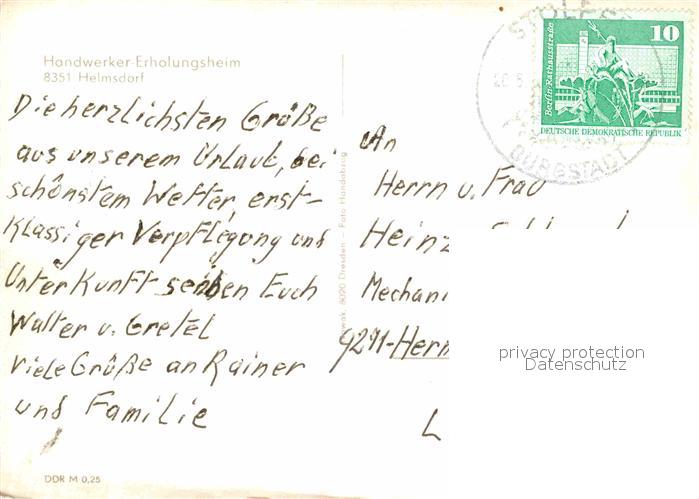 Handwerker-Erholungsheim
8351 Helmsdorf
Die herzlichsten Grüße
aus unserem Urlaub, bei
schönstem Wetter, erst-
klassiger Verpflegung und
Unterkunft senden Euch
Walter u. Gretel
viele Grüße an Rainer
und Familie
DDR M 0,25
8020 Dresden - Foto Handabzug
STOLPE
BURGSTADT
10
Berlin, Rathausstraße
DEUTSCHE DEMOKRATISCHE REPUBLIK
An
Herrn u. Frau
Heinz
Mechani
9291-Herm
L
privacy protection
Datenschutz